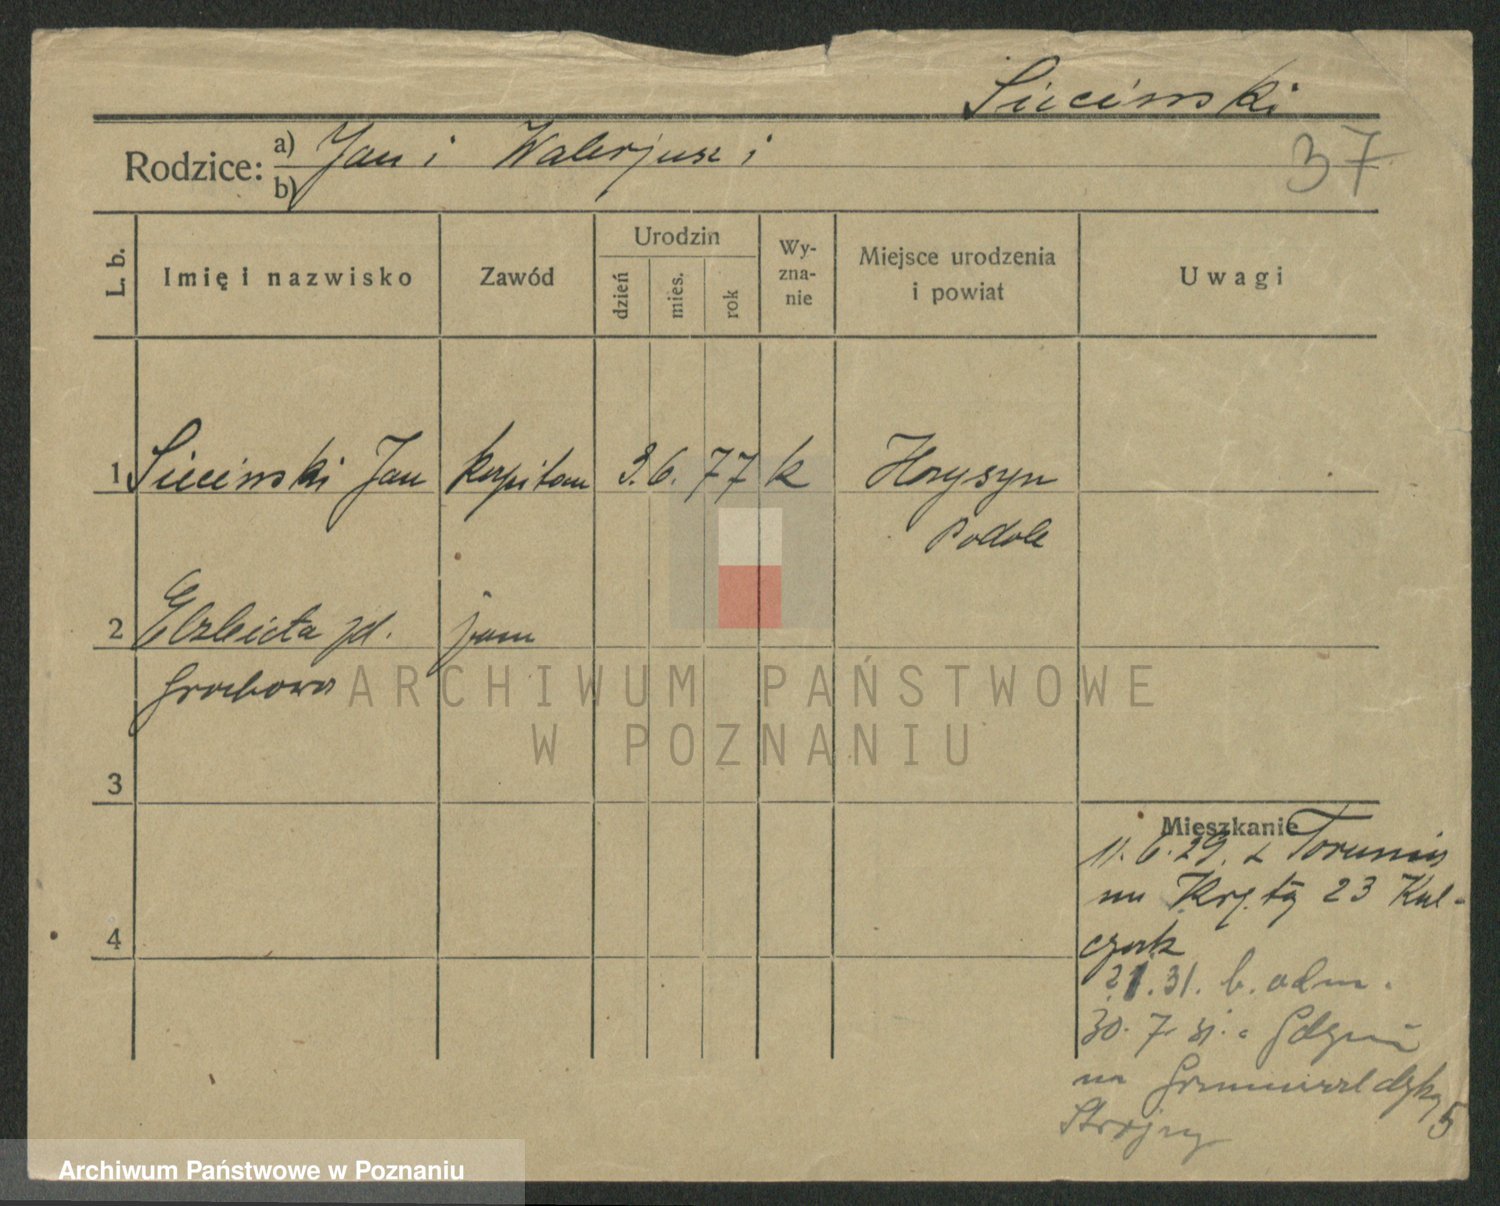 Siecinski
37
Rodzice: a) Jan i Walerjusz i
b)
L. b. Imię i nazwisko Zawód Urodzin dzień mies. rok Wy-zna-nie Miejsce urodzenia i powiat Uwagi
1 Siecinski Jan kapitan 3. 6. 77 k Horysyn
Podole
2 Elzbieta zd.
Grochowa
3
4
Mieszkanie
11. 6. 29. z Torunia
na Krętą 23 Kul-
czak
21.31. b. adm.
30. 7. 31. z Gdyni
na Grunwaldzką 5
ARCHIWUM PAŃSTWOWE
W POZNANIU
Archiwum Państwowe w Poznaniu